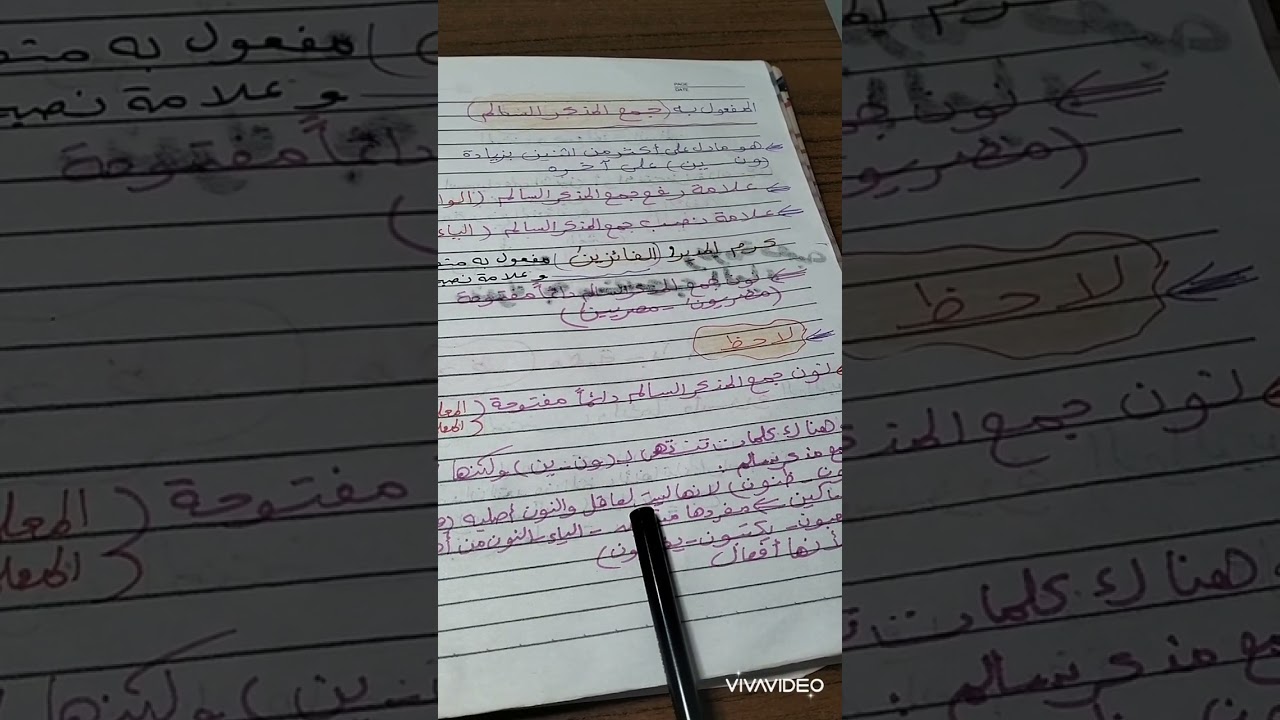 PAGE
DATE
المفعول به (جمع المذكر السالم)
هو ما دل على أكثر من اثنين بزيادة
(ون - ين) على آخره
علامة رفع جمع المذكر السالم (الوا
علامة نصب جمع المذكر السالم (الياء
كرم المدير (الفائزين) مفعول به منص
وعلامة نصبه
نون جمع المذكر السالم دائماً مفتوحة
(مصريون - مصريين)
لاحظ
نون جمع المذكر السالم دائماً مفتوحة (المعل
(المعل
هناك كلمات تنتهى بـ (ون - ين) ولكنها
مع مذكر سالم:
ظنون) لأنها ليست لعاقل والنون أصلية
مفردها - الياء - النون من أ
يكتبون -
لأنها أفعال
VIVAVIDEO